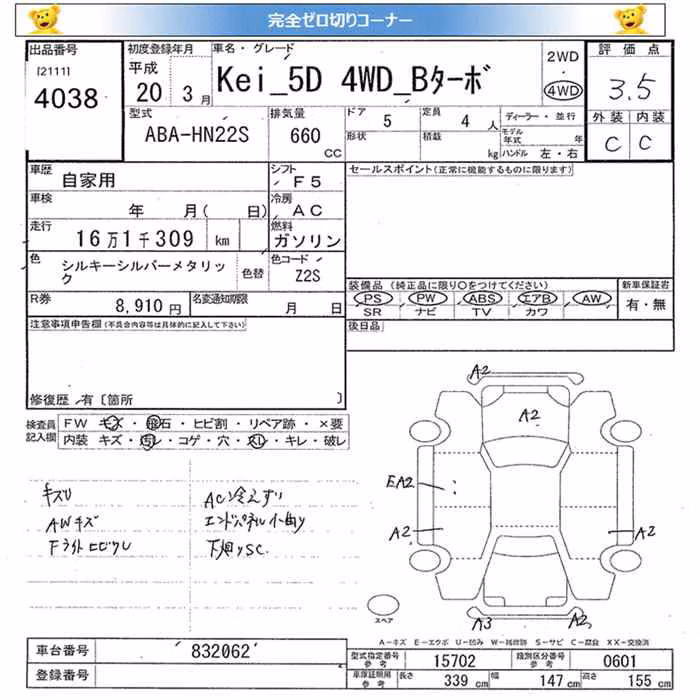 完全ゼロ切りコーナー
出品番号 [2111] 4038
初度登録年月 平成 20 3月
車名・グレード Kei_5D 4WD_Bターボ
2WD
4WD
評価点 3.5
外装 内装
C C
型式 ABA-HN22S
排気量 660 CC
ドア 5
定員 4 人
ディーラー・並行
形状
積載 kg
モデル年式 年
ハンドル 左・右
車歴 自家用
シフト F5
セールスポイント(正常に機能するものに限ります)
車検 年 月( 日)
冷房 AC
走行 16万1千309 km
燃料 ガソリン
色 シルキーシルバーメタリック
色替
色コード Z2S
装備品 (純正品に限り○をつけてください)
新車保証書
PS PW ABS エアB AW
有・無
SR ナビ TV カワ
R券 8,910円
名変通知期限 月 日
後日品
注意事項申告欄 (不具合内容等は具体的に記入して下さい)
修復歴 有〔箇所 〕
検査員記入欄
FW キズ・飛石・ヒビ割・リペア跡・×要
内装 キズ・汚レ・コゲ・穴・スレ・キレ・破レ
キズU
AWキズ
FライトヒビワレU
AC冷えずり
エンドパネル小曲り
下廻りSC.
A2
A2
EA2
A2 A2
A3 A2
スペア
A-キズ E-エクボ U-凹み W-補修跡 S-サビ C-腐食 XX-交換済
車台番号 832062
登録番号
型式指定番号 参考 15702
類別区分番号 参考 0601
車庫証明用 参考 長さ 339 cm 幅 147 cm 高さ 155 cm